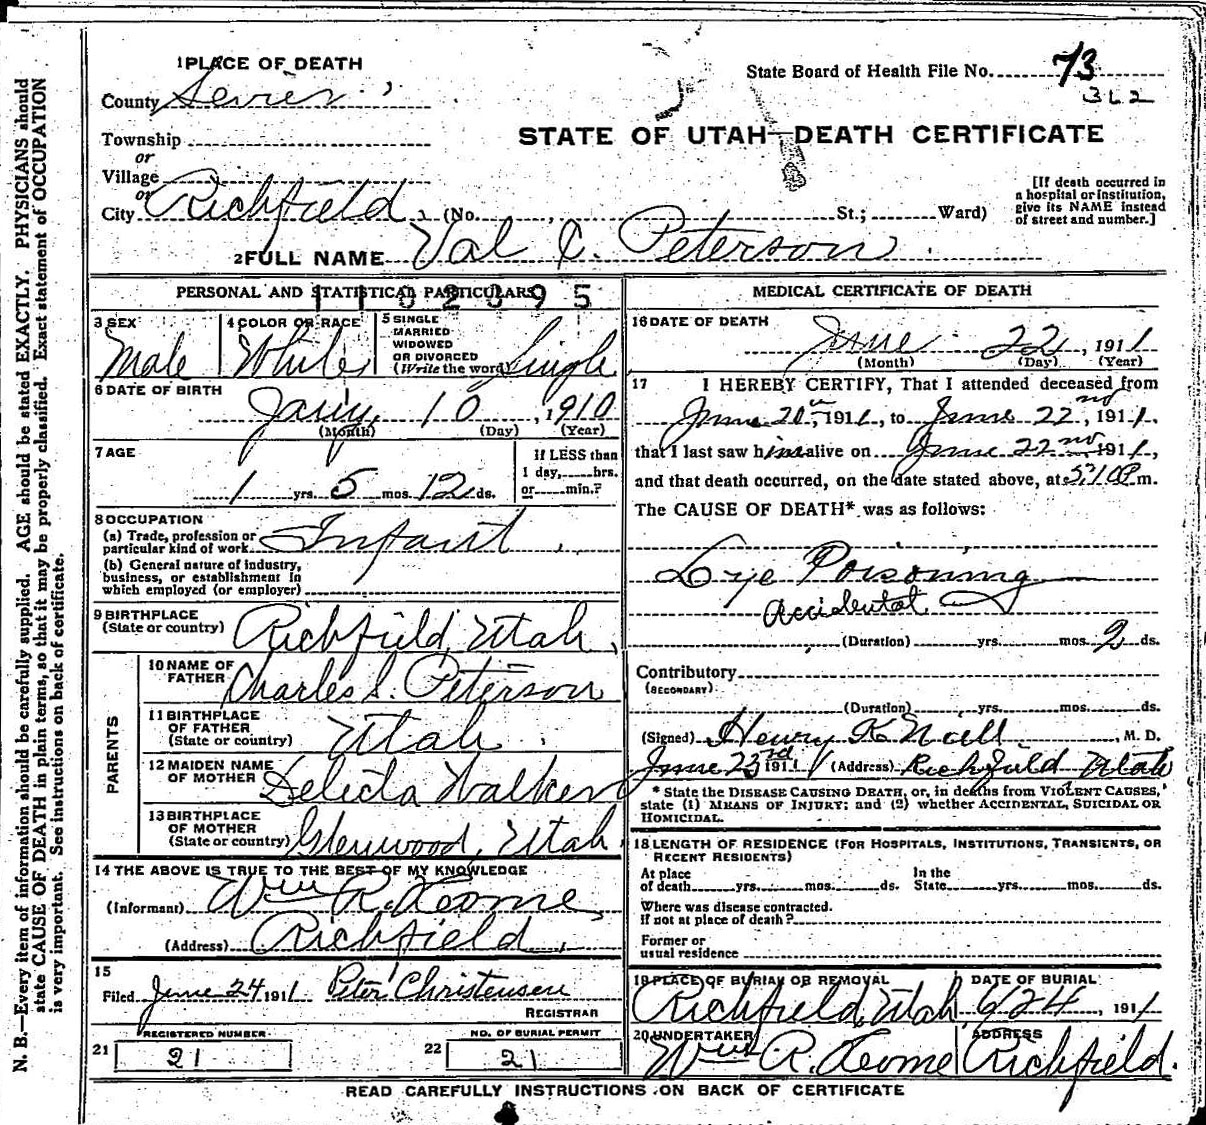 1 PLACE OF DEATH
County Sevier
Township
or
Village
or
City Richfield, (No. , St.; Ward)
State Board of Health File No. 73
362
STATE OF UTAH—DEATH CERTIFICATE
[If death occurred in
a hospital or institution,
give its NAME instead
of street and number.]
2 FULL NAME Val C. Peterson
PERSONAL AND STATISTICAL PARTICULARS
1102095
3 SEX
Male
4 COLOR OR RACE
White
5 SINGLE
MARRIED
WIDOWED
OR DIVORCED
(Write the word) Single
6 DATE OF BIRTH
Jany, 10, 1910
(Month) (Day) (Year)
7 AGE
1 yrs. 5 mos. 12 ds.
If LESS than
1 day, hrs.
or min.?
8 OCCUPATION
(a) Trade, profession or
particular kind of work Infant
(b) General nature of industry,
business, or establishment in
which employed (or employer)
9 BIRTHPLACE
(State or country) Richfield, Utah,
PARENTS
10 NAME OF
FATHER Charles S. Peterson
11 BIRTHPLACE
OF FATHER
(State or country) Utah
12 MAIDEN NAME
OF MOTHER Delecta Walker
13 BIRTHPLACE
OF MOTHER
(State or country) Glenwood, Utah
14 THE ABOVE IS TRUE TO THE BEST OF MY KNOWLEDGE
(Informant) Wm R.
(Address) Richfield,
15
Filed June 24 1911 Peter Christensen
REGISTRAR
REGISTERED NUMBER
21 21
NO. OF BURIAL PERMIT
22 21
MEDICAL CERTIFICATE OF DEATH
16 DATE OF DEATH
June 22, 1911
(Month) (Day) (Year)
17 I HEREBY CERTIFY, That I attended deceased from
June 1911, to June 22 nd, 1911.
that I last saw him alive on June 22 nd 1911,
and that death occurred, on the date stated above, at 5:10 P m.
The CAUSE OF DEATH* was as follows:
Lye Poisoning
Accidental
(Duration) yrs. mos. 2 ds.
Contributory
(SECONDARY)
(Duration) yrs. mos. ds.
(Signed) Henry K Neill, M. D.
June 23rd 1911 (Address) Richfield Utah
* State the DISEASE CAUSING DEATH, or, in deaths from VIOLENT CAUSES,
state (1) MEANS OF INJURY; and (2) whether ACCIDENTAL, SUICIDAL OR
HOMICIDAL.
18 LENGTH OF RESIDENCE (FOR HOSPITALS, INSTITUTIONS, TRANSIENTS, OR
RECENT RESIDENTS)
At place
of death yrs. mos. ds.
In the
State yrs. mos. ds.
Where was disease contracted.
If not at place of death?
Former or
usual residence
19 PLACE OF BURIAL OR REMOVAL
Richfield, Utah
DATE OF BURIAL
6/24, 1911
20 UNDERTAKER
Wm R.
ADDRESS
Richfield.
READ CAREFULLY INSTRUCTIONS ON BACK OF CERTIFICATE
N. B.—Every item of information should be carefully supplied. AGE should be stated EXACTLY. PHYSICIANS should
state CAUSE OF DEATH in plain terms, so that it may be properly classified. Exact statement of OCCUPATION
is very important. See instructions on back of certificate.